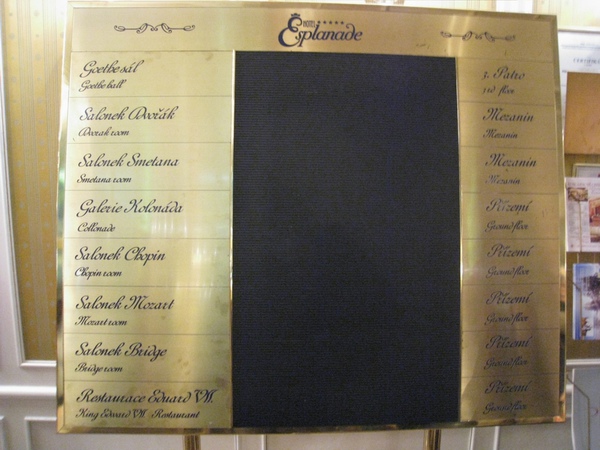 HOTEL
Esplanade
Goethe sál
Goethe hall
3. Patro
3rd floor
Salonek Dvořák
Dvorak room
Mezanin
Mezanin
Salonek Smetana
Smetana room
Mezanin
Mezanin
Galerie Kolonáda
Collonade
Přízemí
Ground floor
Salonek Chopin
Chopin room
Přízemí
Ground floor
Salonek Mozart
Mozart room
Přízemí
Ground floor
Salonek Bridge
Bridge room
Přízemí
Ground floor
Restaurace Eduard VII.
King Edward VII. Restaurant
Přízemí
Ground floor